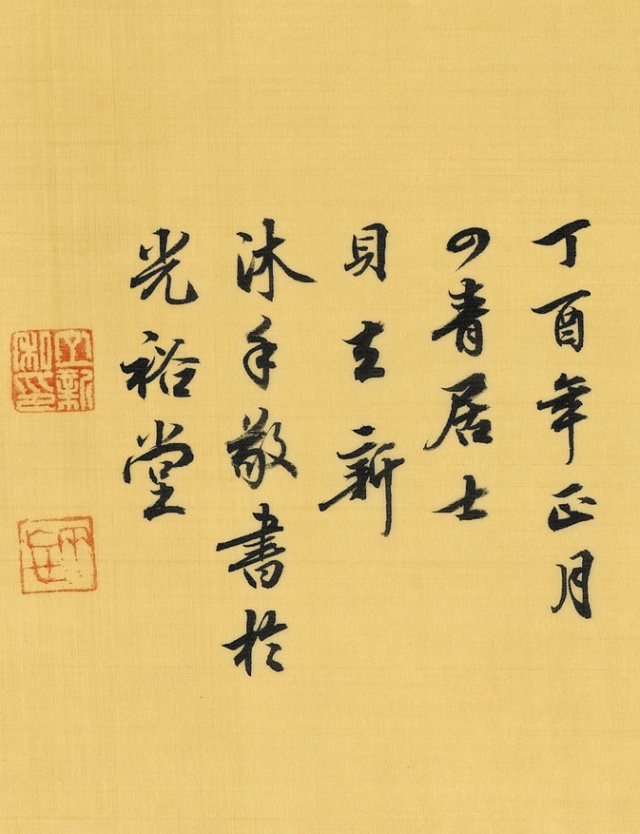 丁酉年正月
青居士
貝立新
沐手敬書於
光裕堂